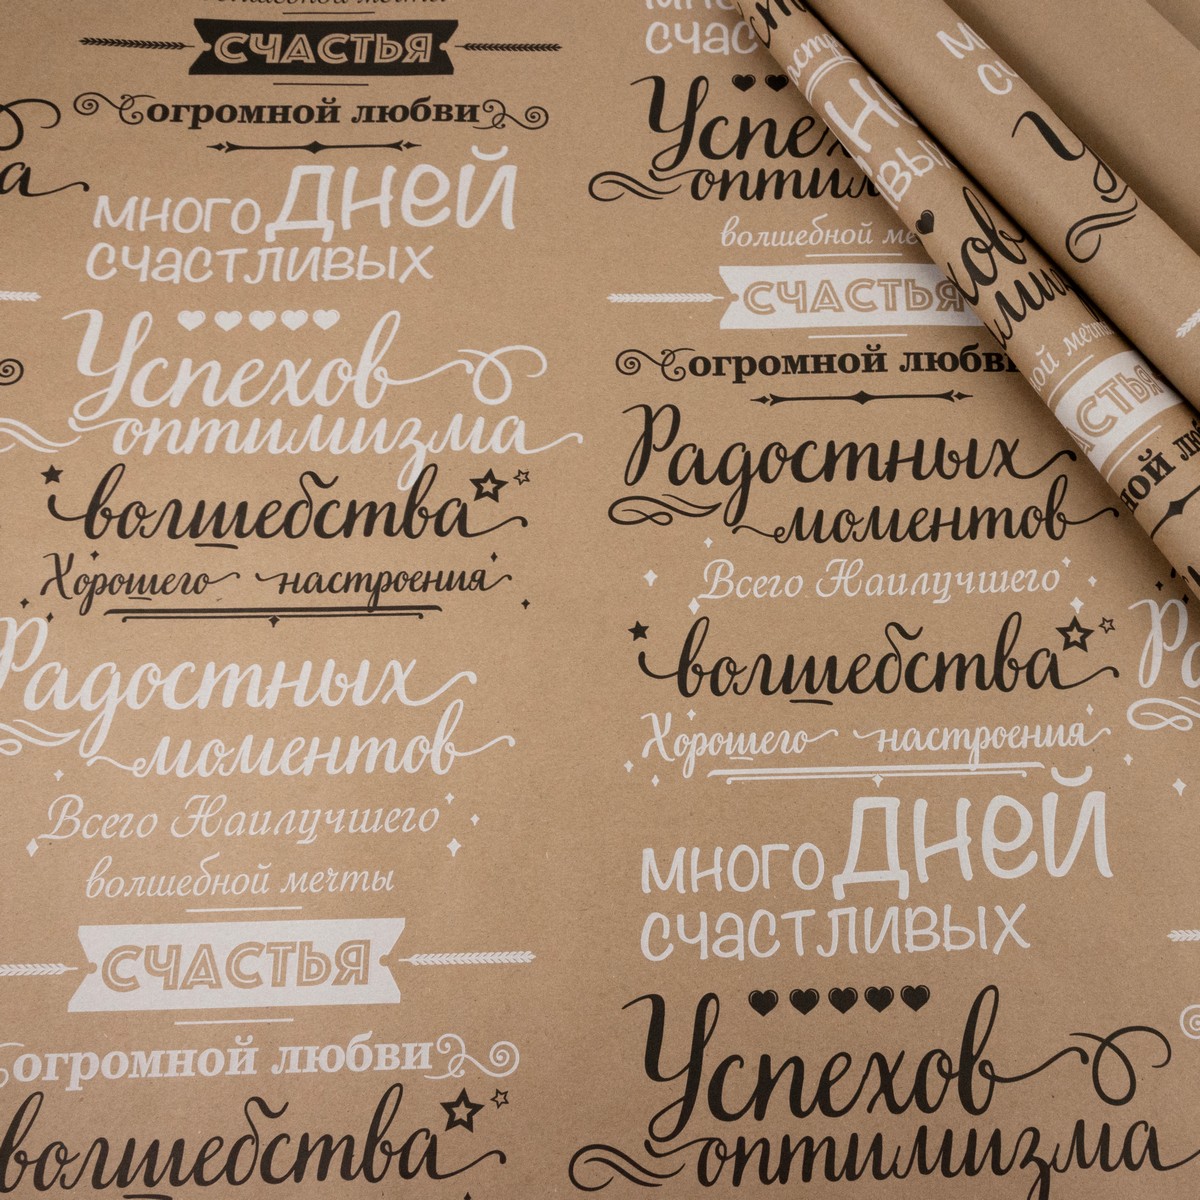 волшебной мечты
СЧАСТЬЯ
огромной любви
много дней
счастливых
Успехов
оптимизма
волшебства
Хорошего настроения
Радостных
моментов
Всего Наилучшего
волшебной мечты
СЧАСТЬЯ
огромной любви
волшебства
счас
Успе
оптим
волшебной ме
СЧАСТЬЯ
огромной любви
Радостных
моментов
Всего Наилучшего
волшебства
Хорошего настроения
много дней
счастливых
Успехов
оптимизма